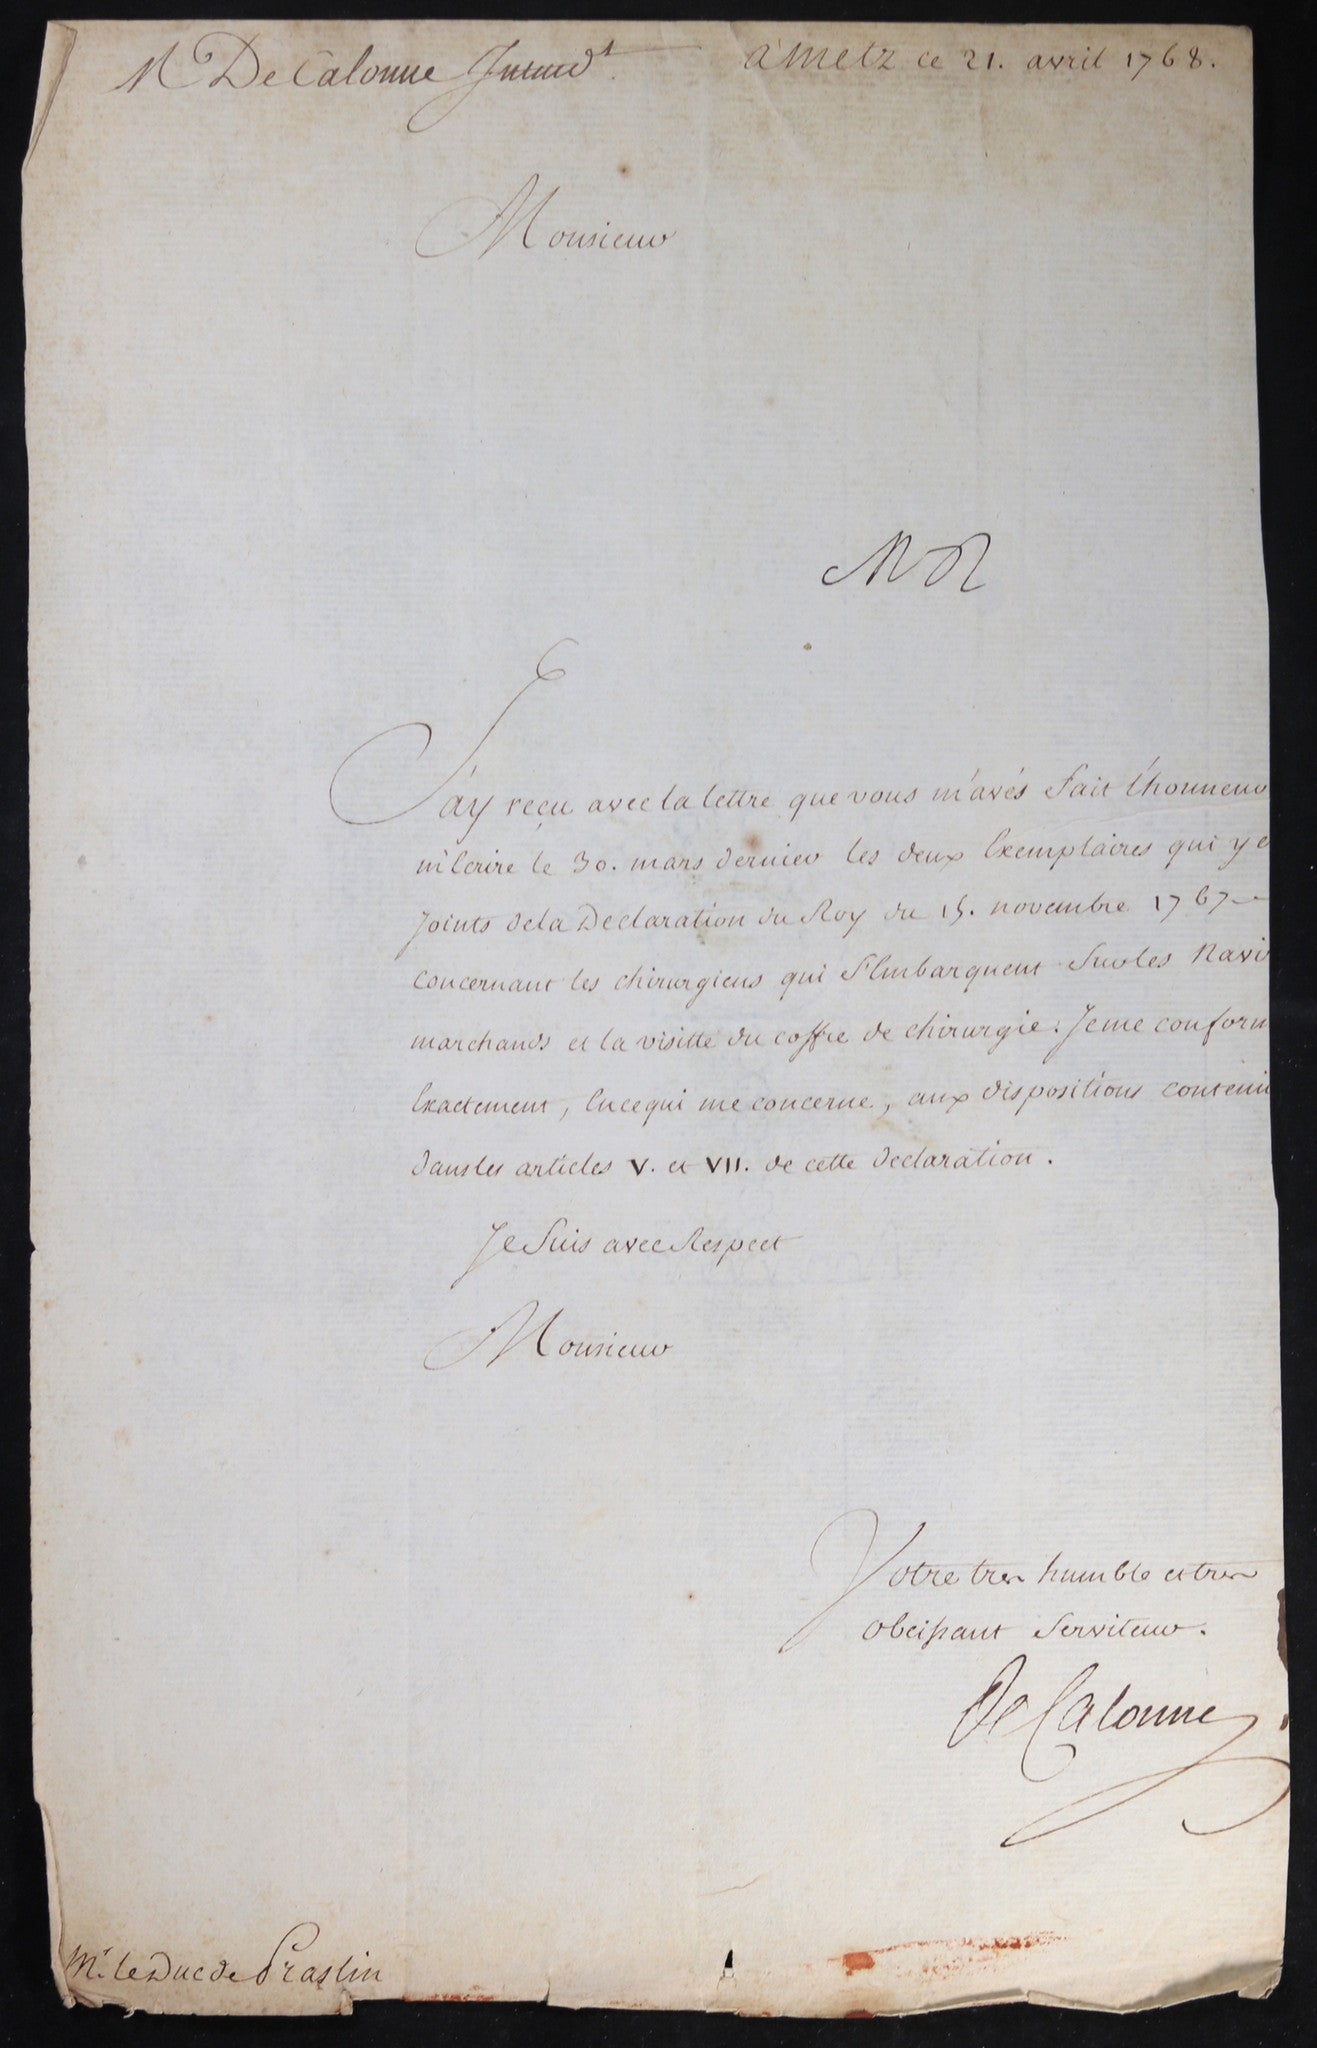 M De Calonne Intend^t.
a Metz ce 21. avril 1768.
Monsieur
J'ay reçu avec la lettre que vous m'avés fait l'honneur
m'Ecrire le 30. mars dernier les deux Exemplaires qui y e
joints de la Declaration du Roy du 15. novembre 1767
concernant les chirurgiens qui s'Embarquent sur les Navi
marchands et la visitte du coffre de chirurgie. Je me conform
Exactement, En ce qui me concerne, aux dispositions contenu
dans les articles V. et VII. de cette declaration.
Je suis avec Respect
Monsieur
Votre tres humble et tres
obeissant serviteur.
De Calonne
M^r. le Duc de Praslin